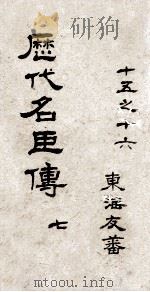 十五之十六
東海友蕃
歷代名臣傳
七
mtoou.info